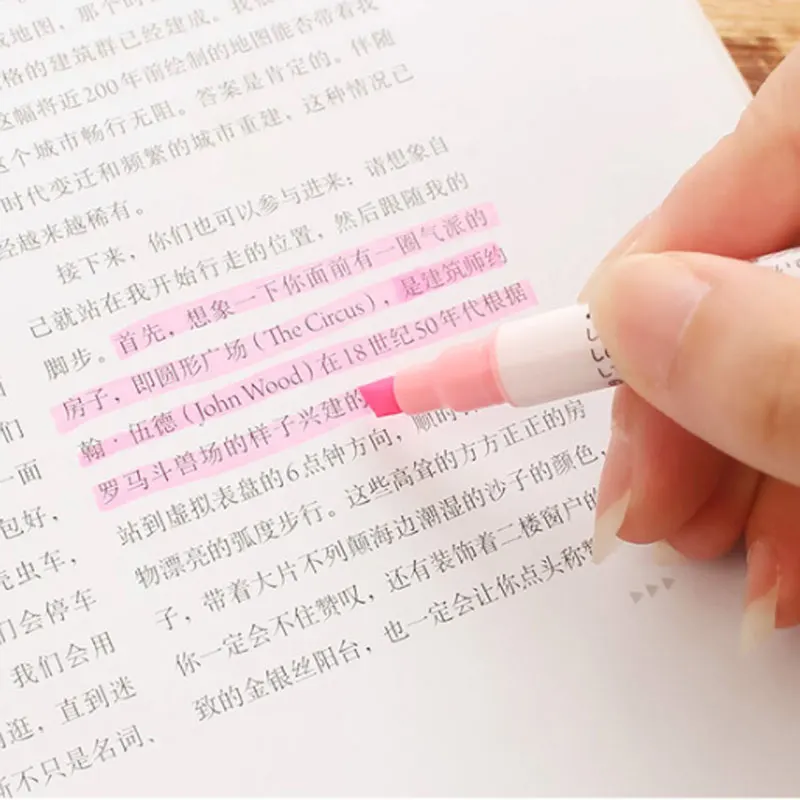 地图，那个时
格的建筑群已经建成。我
这幅将近200年前绘制的地图能否带着我
这个城市畅行无阻。答案是肯定的。伴随
时代变迁和频繁的城市重建，这种情况已
经越来越稀有。
接下来，你们也可以参与进来：请想象自
己就站在我开始行走的位置，然后跟随我的
脚步。首先，想象一下你面前有一圈气派的
房子，即圆形广场（The Circus），是建筑师约
翰·伍德（John Wood）在18世纪50年代根据
罗马斗兽场的样子兴建的
站到虚拟表盘的6点钟方向，顺
物漂亮的弧度步行。这些高耸的方方正正的房
子，带着大片不列颠海边潮湿的沙子的颜色，
你一定会不住赞叹，还有装饰着二楼窗户的
致的金银丝阳台，也一定会让你点头称
们
一面
包好，
壳虫车，
们会停车
我们会用
逛，直到迷
不只是名词、